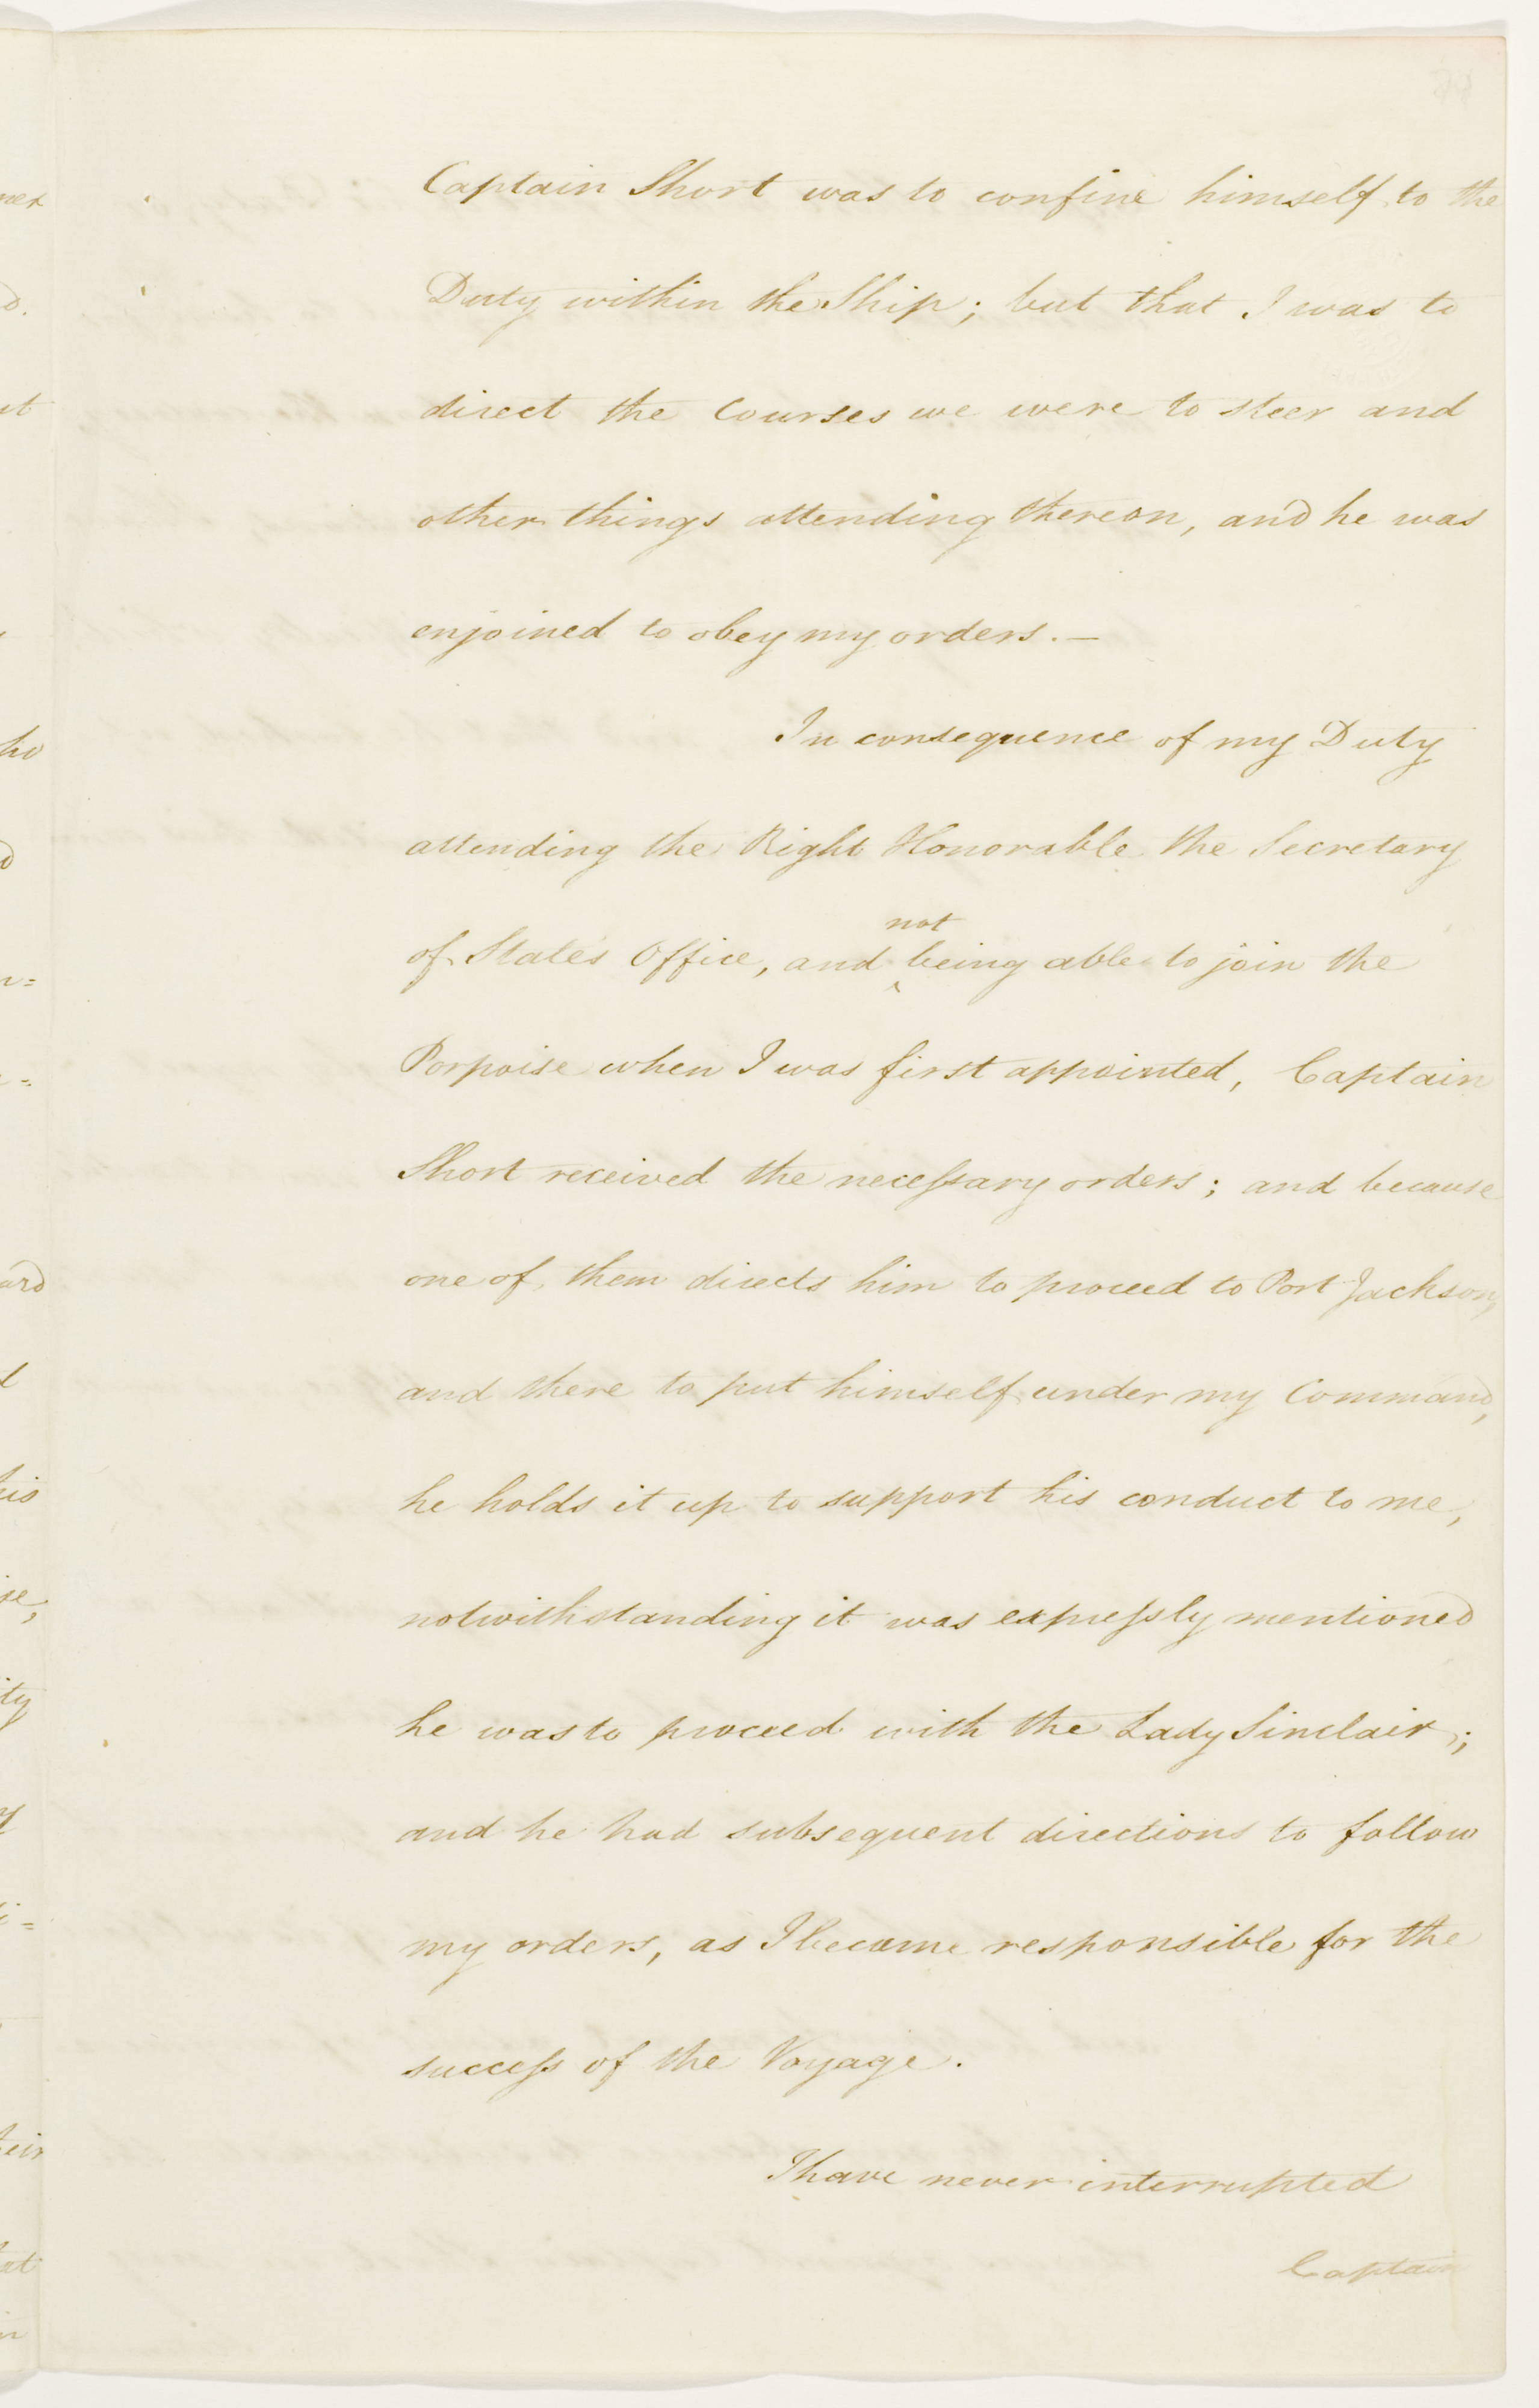 Captain Short was to confine himself to the
Duty within the Ship; but that I was to
direct the Courses we were to steer and
other things attending thereon, and he was
enjoined to obey my orders. —
In consequence of my Duty
attending the Right Honorable the Secretary
not
of State's Office, and ‸ being able to join the
Porpoise when I was first appointed, Captain
Short received the neceſsary orders; and because
one of them directs him to proceed to Port Jackson,
and there to put himself under my Command,
he holds it up to support his conduct to me,
notwithstanding it was expreſsly mentioned
he was to proceed with the Lady Sinclair;
and he had subsequent directions to follow
my orders, as I became responsible for the
succeſs of the Voyage.
I have never interrupted
Captain